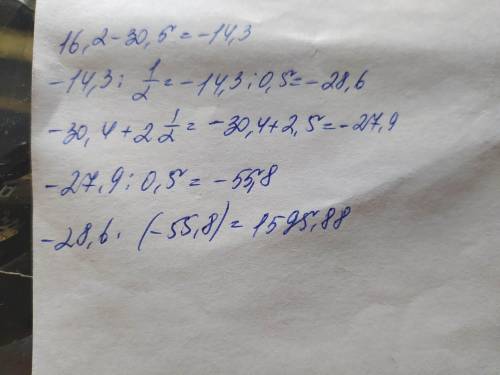 16,2-30,5=-14,3
-14,3: 1/2=-14,3:0,5=-28,6
-30,4+2 1/2=-30,4+2,5=-27,9
-27,9:0,5=-55,8
-28,6·(-55,8)=1595,88